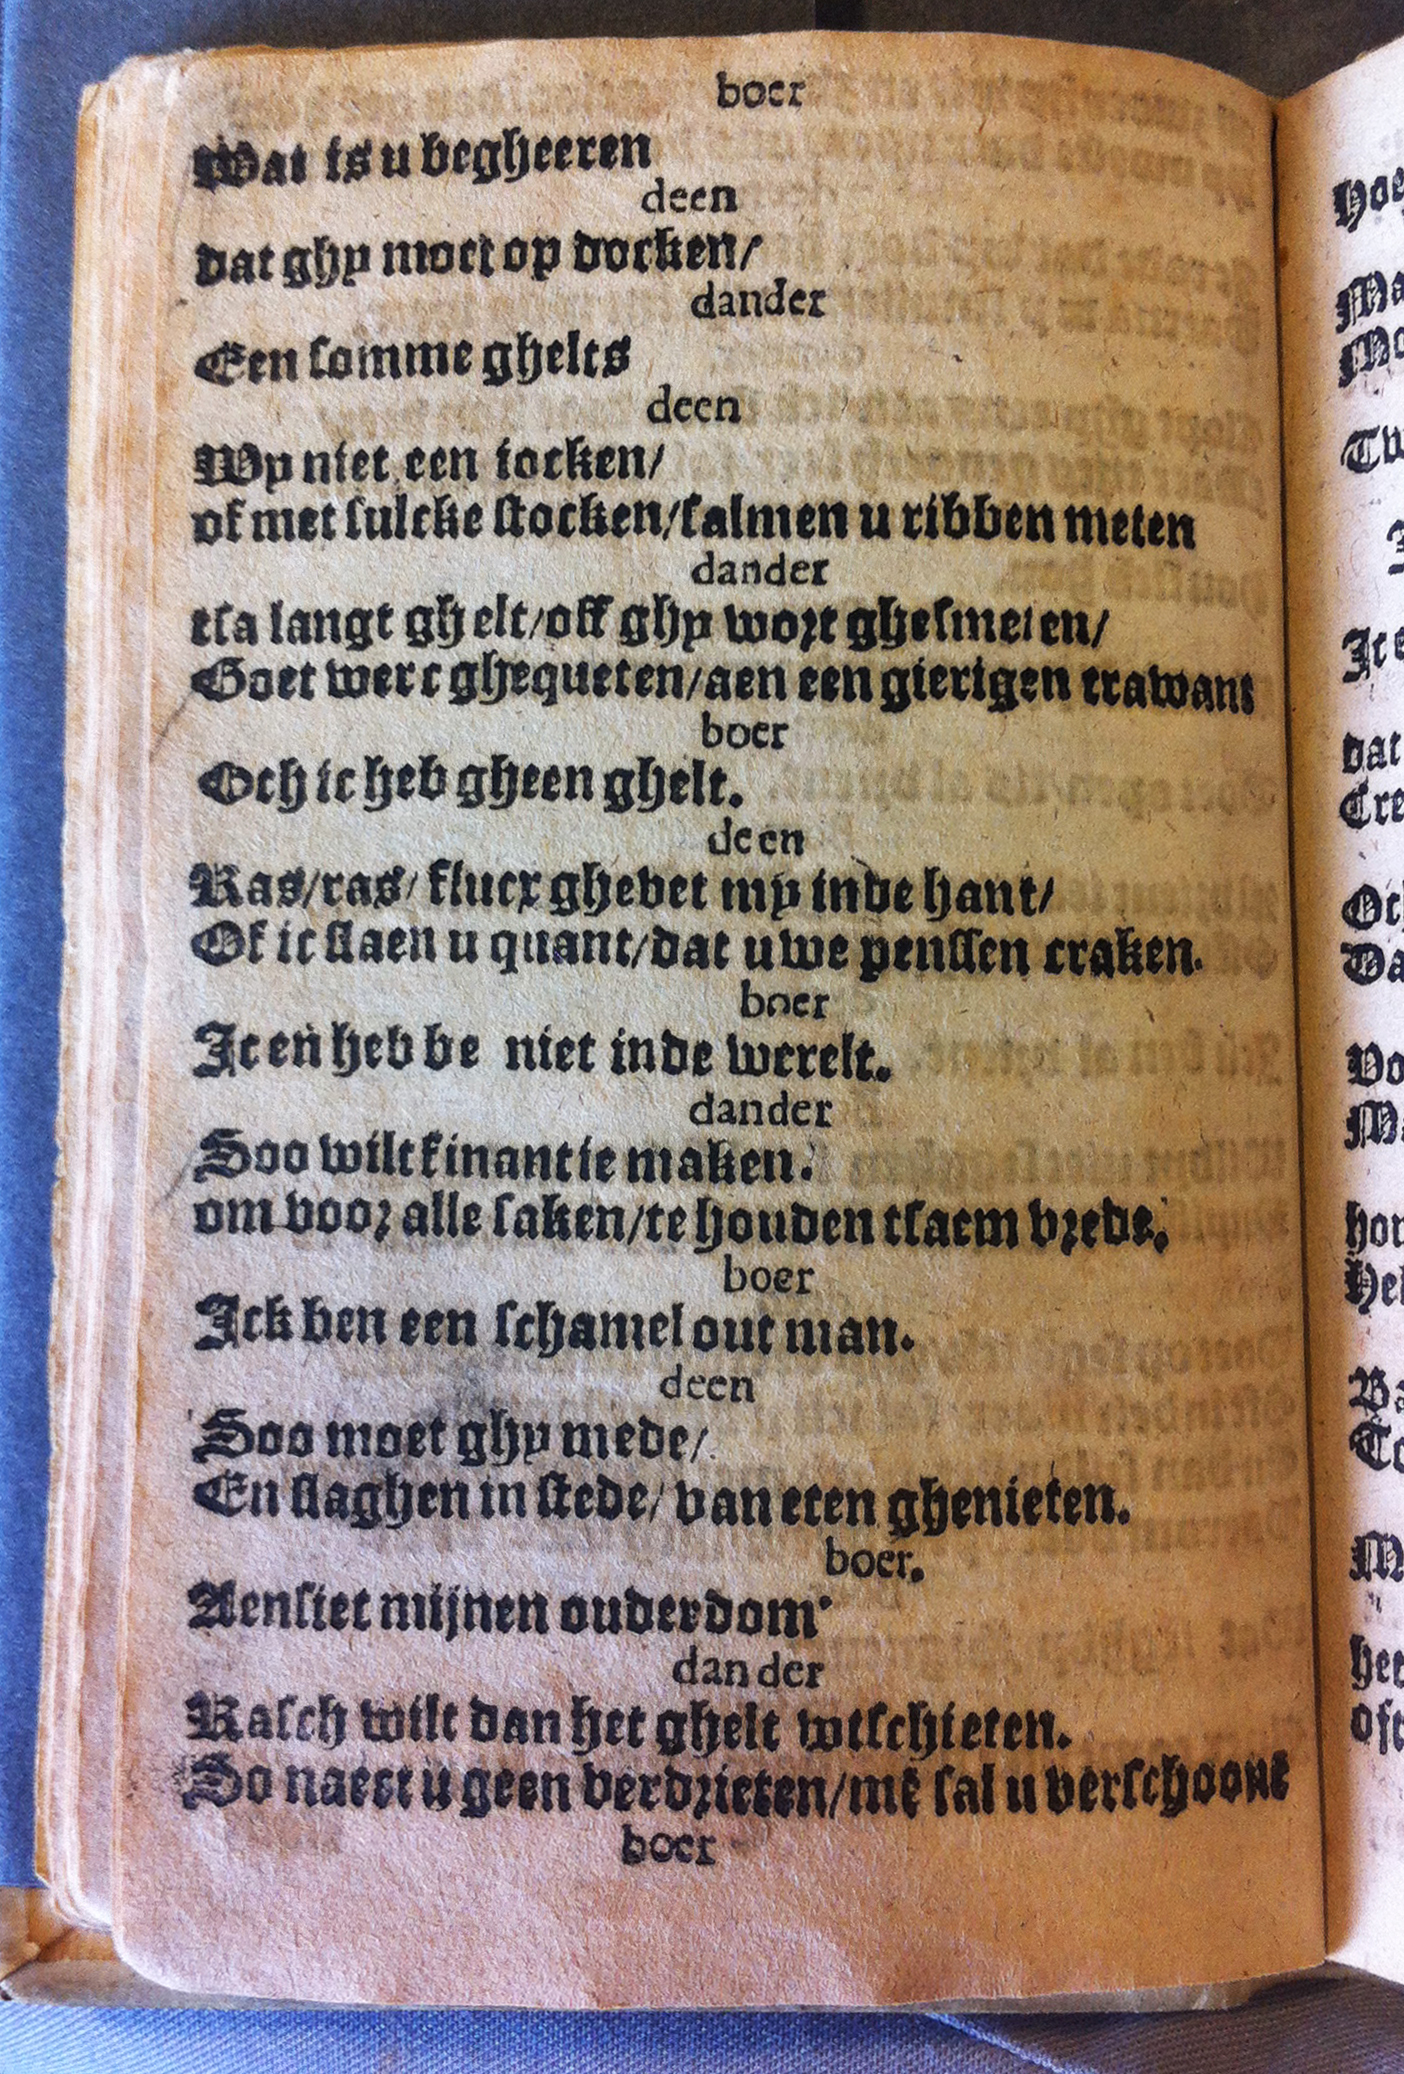 boer
Wat is u begheeren
deen
dat ghy moet op docken/
dander
Een somme ghelts
deen
Wy niet een iocken/
of met sulcke stocken/salmen u ribben meten
dander
tsa langt ghelt/off ghy wort ghesmeten/
Goet werc ghequeten/aen een gierigen trawant
boer
Och ic heb gheen ghelt.
deen
Ras/ras/ flucx ghevet my inde hant/
Of ic slaen u quant/dat uwe penssen craken.
boer
Ic en hebbe niet inde werelt.
dander
Soo wilt finantie maken.
om voor alle saken/te houden tsaem vrede.
boer
Ick ben een schamel out man.
deen
Soo moet ghy mede/
En slaghen in stede/ van eten ghenieten.
boer.
Aensiet mijnen ouderdom
dander
Rasch wilt dan het ghelt wtschieten.
So naect u geen verdrieten/mē sal u verschoonē
boer
hoe
Ma
Tw
Ic
dat
Cre
Och
Da
Vo
Ma
hou
Heb
Ba
To
M
het
oft